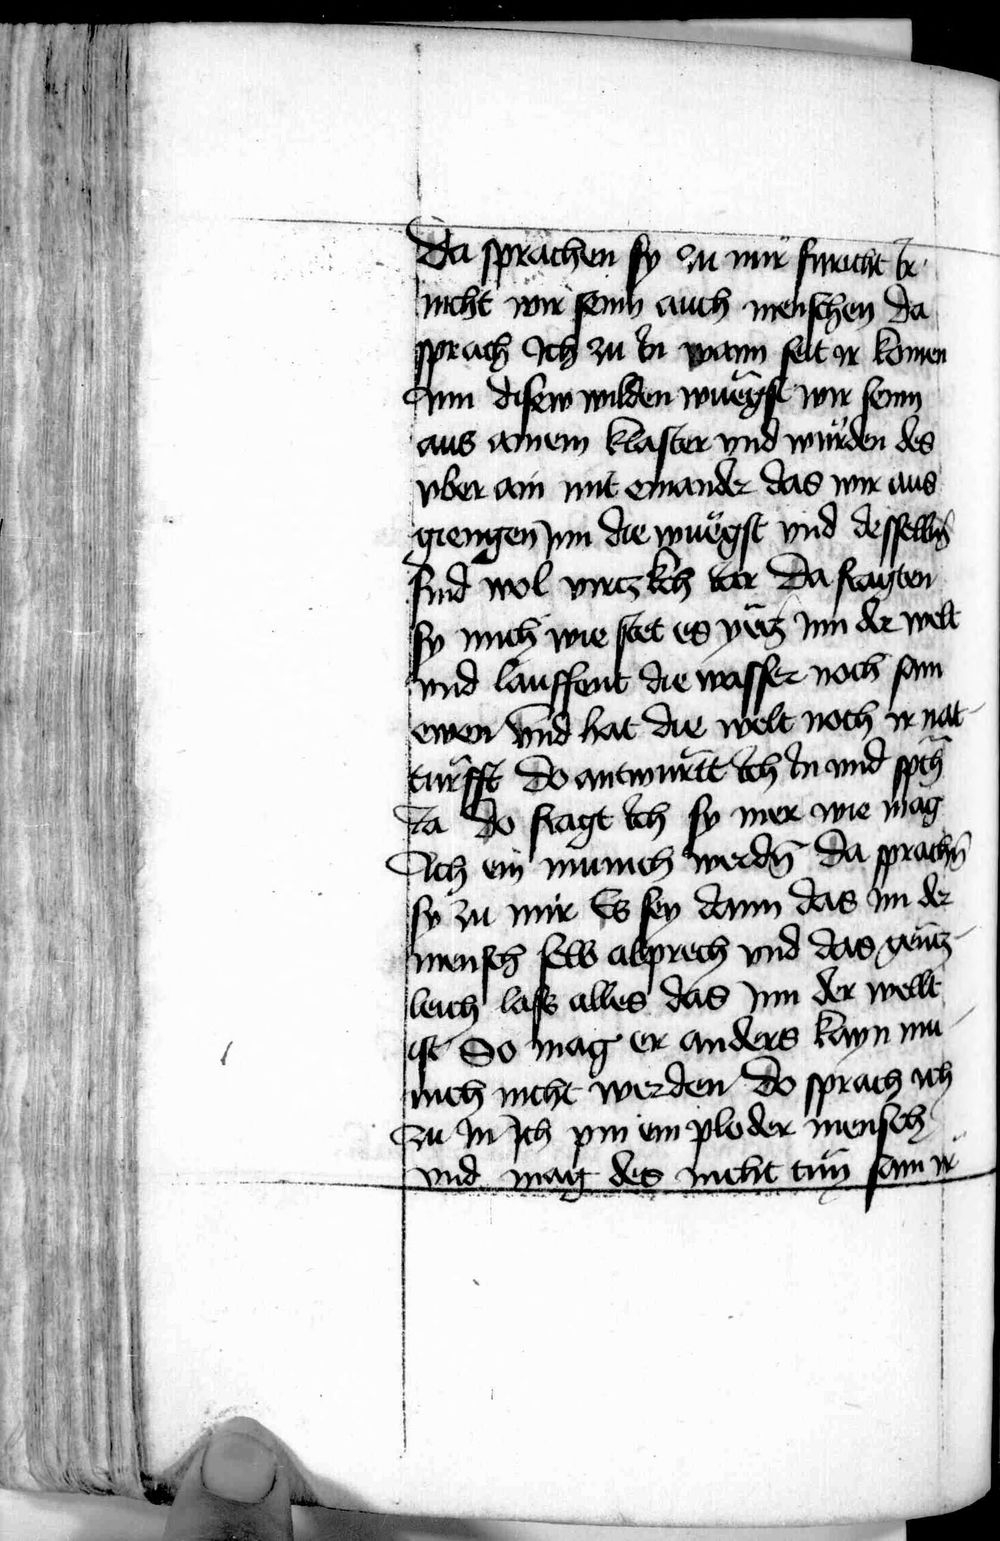 Da sprachen sy zu mir furicht Ir
nicht wir seinn auch menschen da
sprach Ich zu In wann seit ir komen
Inn disew wilden wuͤegst wir seinn
aus ainem kloster vnd wurden des
vber ain mit einander das wir aus
giengen Inn die wuͤegst vnd desselbn̄
sind wol virczkch Iar Da fragten
sy mich wie stet es yecz Inn der welt
vnd lauffent die wasser noch sam
ewen Vnd hat die welt noch ir nat
turfft Do antwurtt Ich In vnd spch̄
Ia Do fragt Ich sy mer wie mag
Ich ein munich werdn̄ Da sprachn̄
sy zu mir Es sey dann das im der
mensch selbs abprech vnd das gencz
leich lass alles das Inn der wellt
ist So mag er anders kayn mu
nich nicht werden Do sprach ich
Zu In Ich pin ein ploder mensch
vnd mag des nicht tun sam ir